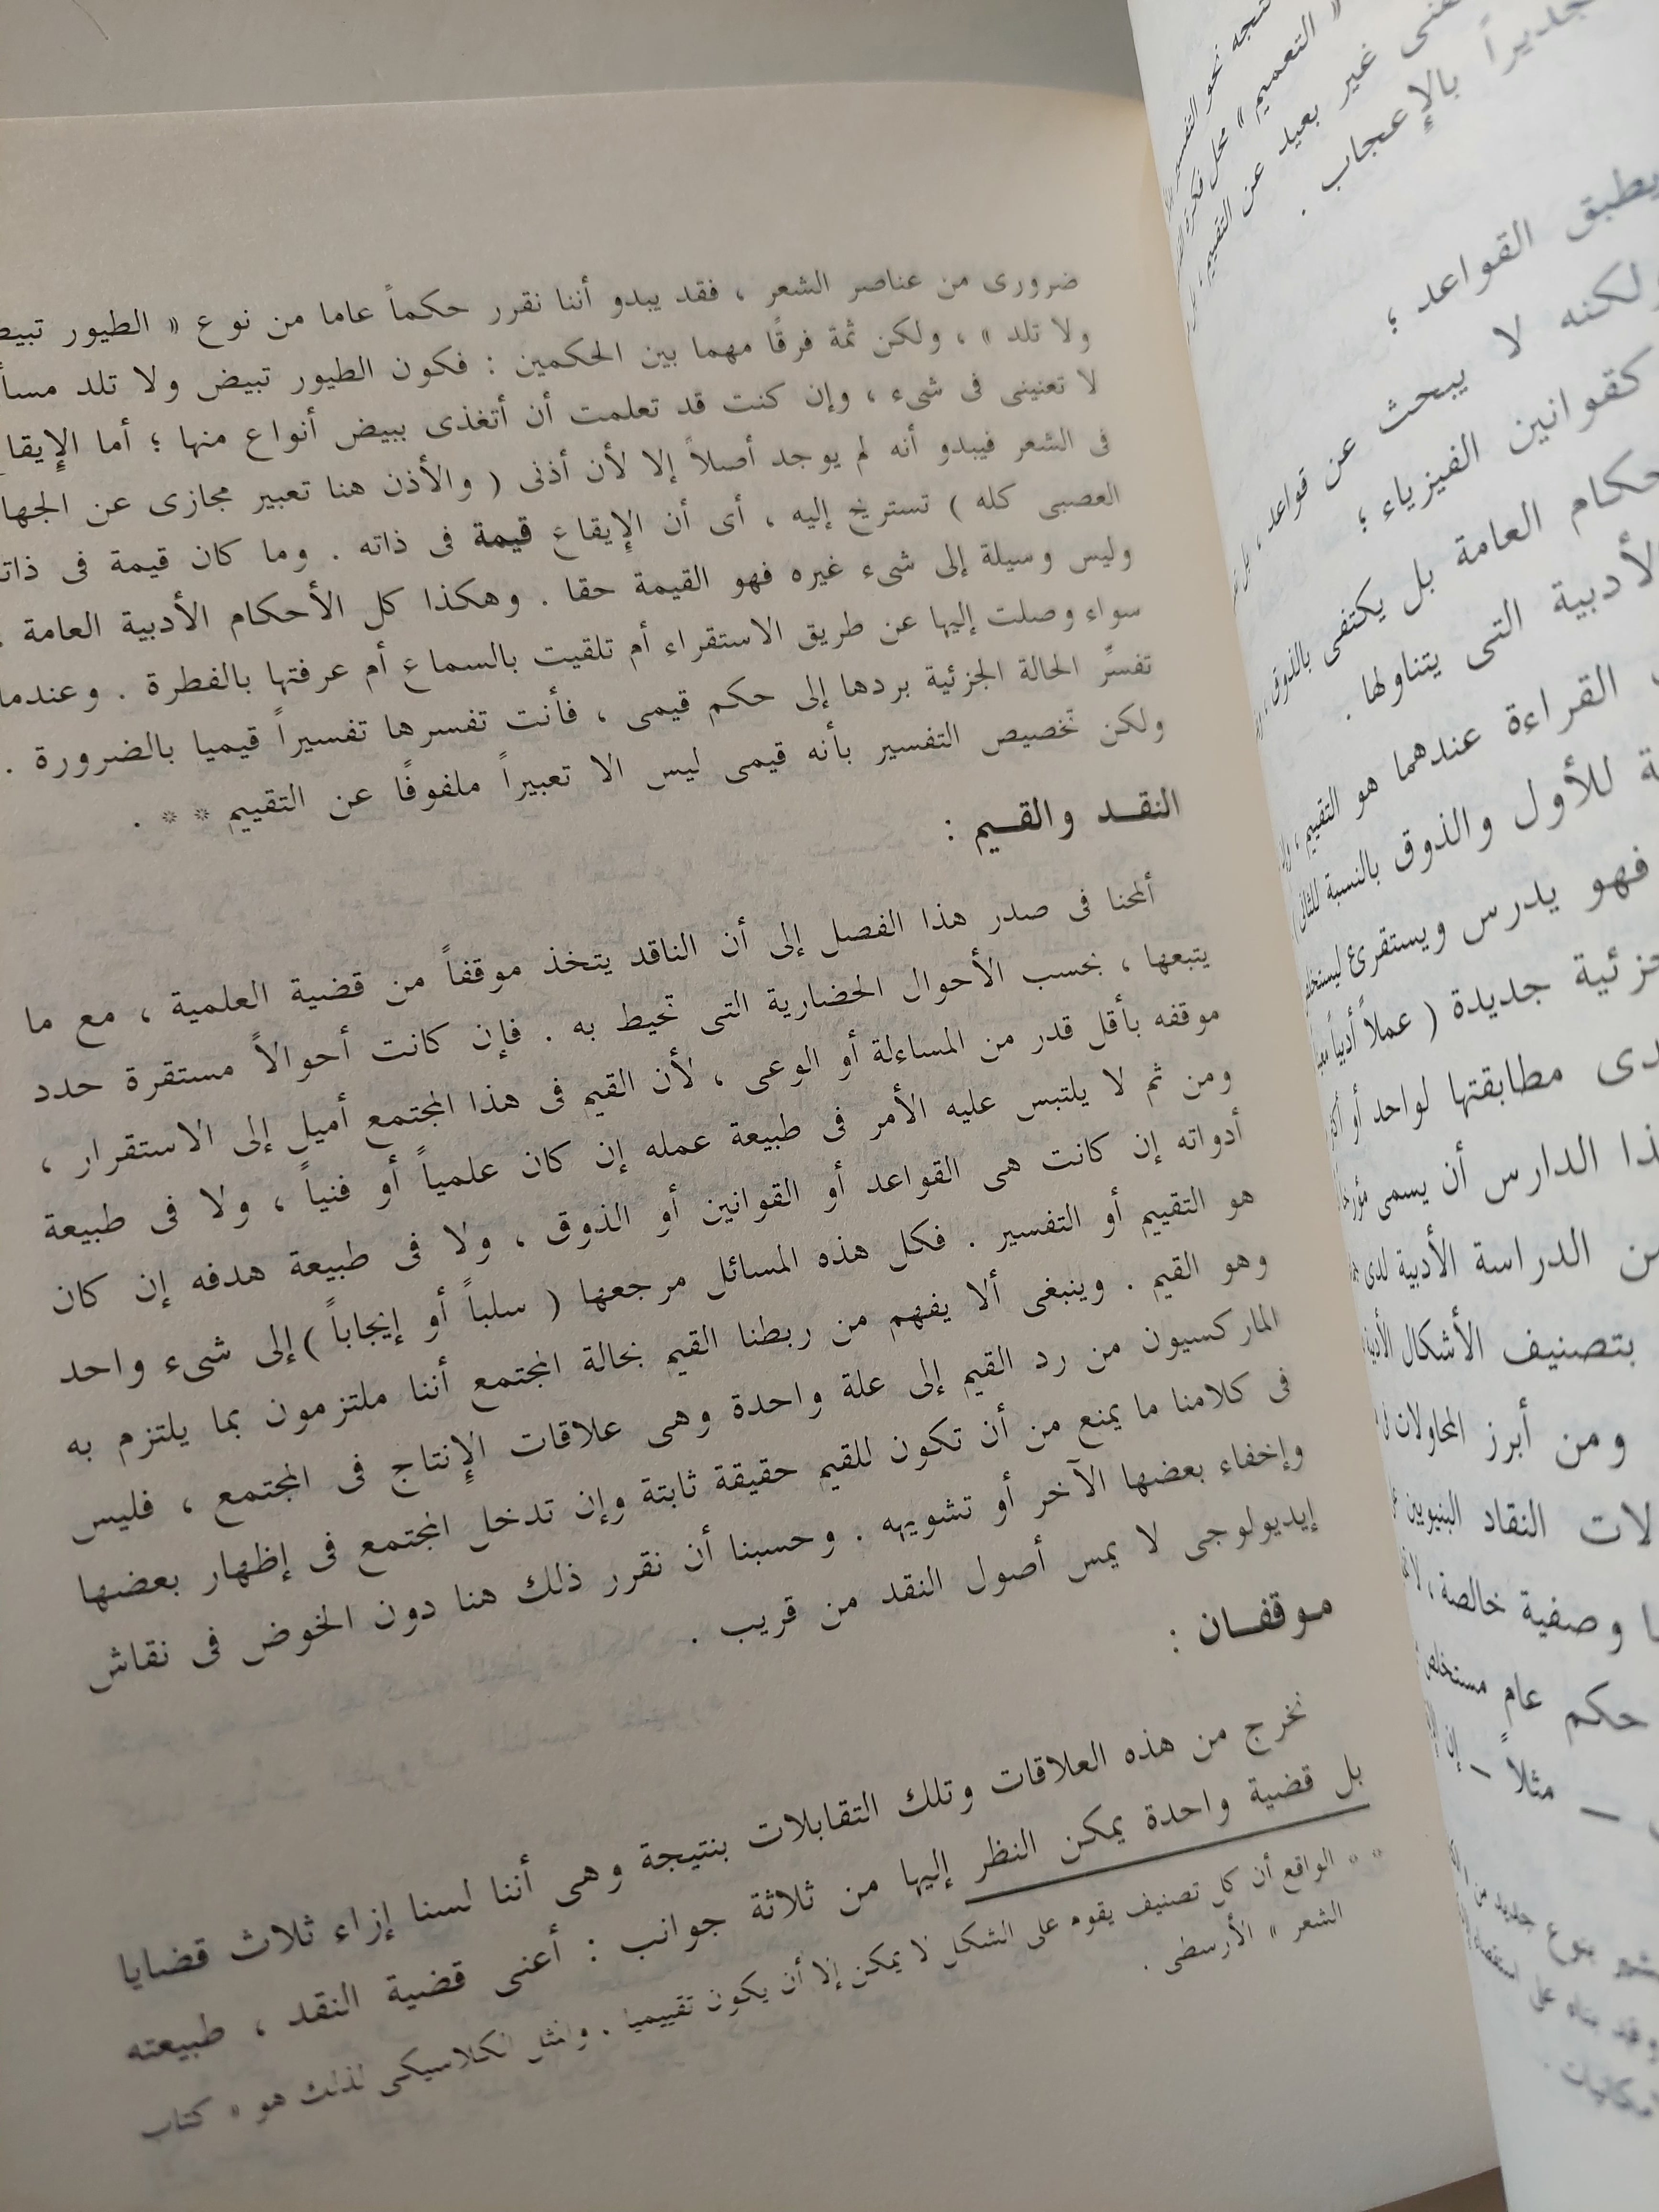 ضرورى من عناصر الشعر ، فقد يبدو أننا نقرر حكماً عاما من نوع « الطيور تبيض
ولا تلد » ، ولكن ثمة فرقًا مهما بين الحكمين : فكون الطيور تبيض ولا تلد
لا تعنينى فى شىء ، وإن كنت قد تعلمت أن أتغذى ببيض أنواع منها ؛ أما الإيقاع
فى الشعر فيبدو أنه لم يوجد أصلاً إلا لأن أذنى ( والأذن هنا تعبير مجازى عن الجهاز
العصبى كله ) تستريح إليه ، أى أن الإيقاع قيمة فى ذاته . وما كان قيمة فى
وليس وسيلة إلى شىء غيره فهو القيمة حقا . وهكذا كل الأحكام الأدبية العامة
سواء وصلت إليها عن طريق الاستقراء أم تلقيت بالسماع أم عرفتها بالفطرة . وعندما
تفسرِّ الحالة الجزئية بردها إلى حكم قيمى ، فأنت تفسرها تفسيراً قيميا بالضرورة .
ولكن تخصيص التفسير بأنه قيمى ليس الا تعبيراً ملفوفًا عن التقييم * * .
النقــد والقــيم :
ألمحنا فى صدر هذا الفصل إلى أن الناقد يتخذ موقفاً من قضية العلمية ، مع ما
يتبعها ، بحسب الأحوال الحضارية التى تحيط به . فإن كانت أحوالاً مستقرة حدد
موقفه بأقل قدر من المساءلة أو الوعى ، لأن القيم فى هذا المجتمع أميل إلى الاستقرار ،
ومن ثم لا يلتبس عليه الأمر فى طبيعة عمله إن كان علمياً أو فنياً ، ولا فى طبيعة
أدواته إن كانت هى القواعد أو القوانين أو الذوق ، ولا فى طبيعة هدفه إن كان
هو التقييم أو التفسير . فكل هذه المسائل مرجعها ( سلباً أو إيجاباً ) إلى شىء واحد
وهو القيم . وينبغى ألا يفهم من ربطنا القيم بحالة المجتمع أننا ملتزمون بما يلتزم به
الماركسيون من رد القيم إلى علة واحدة وهى علاقات الإنتاج فى المجتمع ، فليس
فى كلامنا ما يمنع من أن تكون للقيم حقيقة ثابتة وإن تدخل المجتمع فى إظهار بعضها
وإخفاء بعضها الآخر أو تشويهه . وحسبنا أن نقرر ذلك هنا دون الخوض فى نقاش
إيديولوجى لا يمس أصول النقد من قريب .
موقفــان :
نخرج من هذه العلاقات وتلك التقابلات بنتيجة وهى أننا لسنا إزاء ثلاث قضايا
بل قضية واحدة يمكن النظر إليها من ثلاثة جوانب : أعنى قضية النقد ، طبيعته
* * الواقع أن كل تصنيف يقوم على الشكل لا يمكن إلا أن يكون تقييميا . والمثل الكلاسيكى لذلك هو « كتاب
الشعر » الأرسطى .
نحو التفسير
« التعميم » محل فكرة
غير بعيد عن التقييم ،
جديراً بالإعجاب .
يطبق القواعد ؛
ولكنه لا يبحث عن قواعد ،
كقوانين الفيزياء ؛
العامة بل يكتفى بالذوق ،
الأدبية التى يتناولها .
القراءة عندهما هو التقييم ،
للأول والذوق بالنسبة للثانى
فهو يدرس ويستقرئ
جديدة ( عملاً أدبياً
مطابقتها لواحد أو
الدارس أن يسمى
الدراسة الأدبية لدى
بتصنيف الأشكال
ومن أبرز المحاولات
النقاد البنيويين
وصفية خالصة ،
حكم عام
— مثلاً —